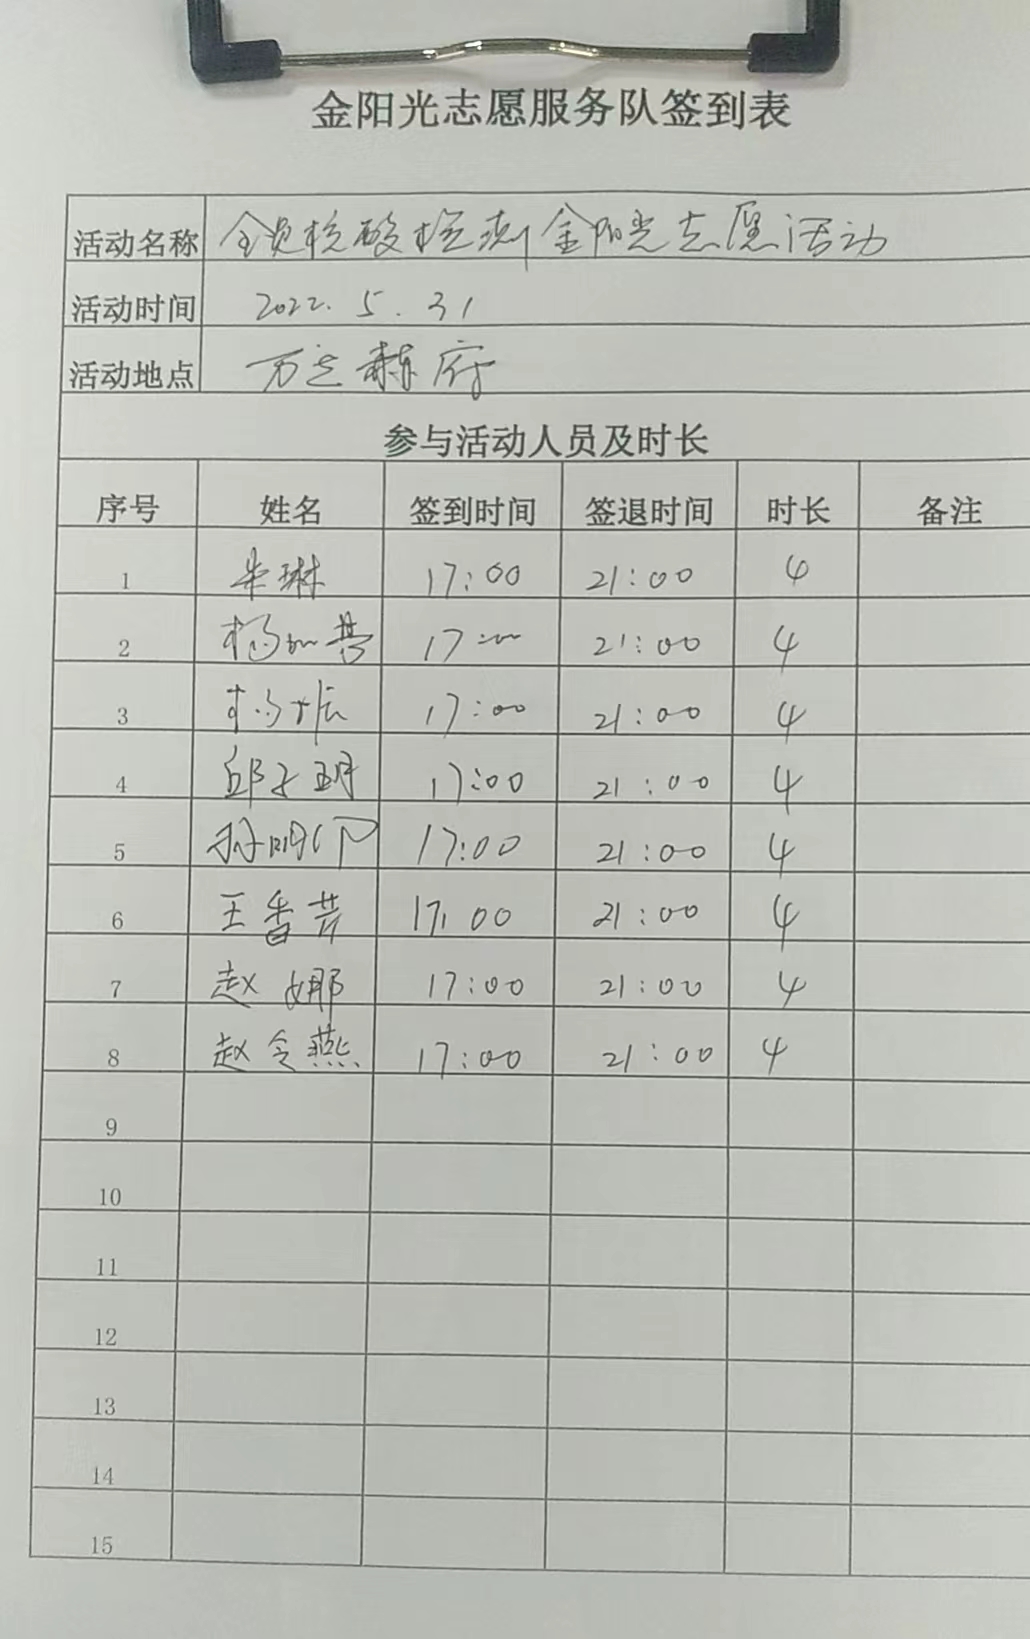 金阳光志愿服务队签到表
活动名称 全员核酸检测金阳光志愿活动
活动时间 2022.5.31
活动地点 万达赫府
参与活动人员及时长
序号 姓名 签到时间 签退时间 时长 备注
1 朱琳 17:00 21:00 4
2 杨如营 17:00 21:00 4
3 杨 17:00 21:00 4
4 邱子玥 17:00 21:00 4
5 孙明 17:00 21:00 4
6 王香芹 17:00 21:00 4
7 赵娜 17:00 21:00 4
8 赵令燕 17:00 21:00 4
9
10
11
12
13
14
15